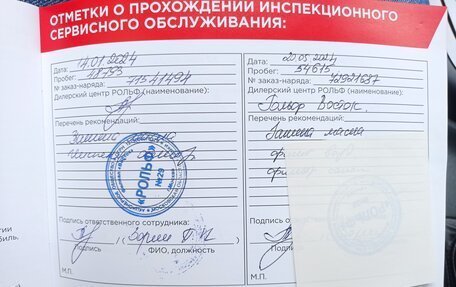 ОТМЕТКИ О ПРОХОЖДЕНИИ ИНСПЕКЦИОННОГО
СЕРВИСНОГО ОБСЛУЖИВАНИЯ:
Дата: 14.01.2024
Пробег: 48793
№ заказ-наряда: 71541494
Дилерский центр РОЛЬФ (наименование):
Перечень рекомендаций:
Замена
«РОЛЬФ»
№29
Москва
Подпись ответственного сотрудника:
Подпись
ФИО, должность
М.П.
Дата: 20.05.2024
Пробег: 54615
№ заказ-наряда: 72921687
Дилерский центр РОЛЬФ (наименование):
Рольф Восток.
Перечень рекомендаций:
Замена масла
Подпись ответственного сотрудника:
Подпись
ФИО, должность
М.П.